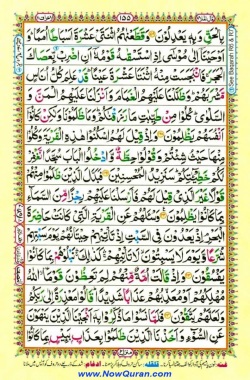 ۱۵۵
بِالْحَقِّ وَبِهٖ يَعْدِلُوْنَ وَقَطَّعْنٰهُمُ اثْنَتَيْ عَشْرَةَ اَسْبَاطًا اُمَمًا وَ
اَوْحَيْنَاۤ اِلٰى مُوْسٰۤى اِذِ اسْتَسْقٰىهُ قَوْمُهٗۤ اَنِ اضْرِبْ بِّعَصَاكَ
الْحَجَرَ فَانْۢبَجَسَتْ مِنْهُ اثْنَتَا عَشْرَةَ عَيْنًا قَدْ عَلِمَ كُلُّ اُنَاسٍ
مَّشْرَبَهُمْ وَظَلَّلْنَا عَلَيْهِمُ الْغَمَامَ وَاَنْزَلْنَا عَلَيْهِمُ الْمَنَّ وَ
السَّلْوٰى كُلُوْا مِنْ طَيِّبٰتِ مَا رَزَقْنٰكُمْ وَمَا ظَلَمُوْنَا وَلٰكِنْ كَانُوْۤا
اَنْفُسَهُمْ يَظْلِمُوْنَ وَاِذْ قِيْلَ لَهُمُ اسْكُنُوْا هٰذِهِ الْقَرْيَةَ وَكُلُوْا
مِنْهَا حَيْثُ شِئْتُمْ وَقُوْلُوْا حِطَّةٌ وَّادْخُلُوا الْبَابَ سُجَّدًا نَّغْفِرْ
لَكُمْ خَطِيْٓـٰٔتِكُمْ سَنَزِيْدُ الْمُحْسِنِيْنَ فَبَدَّلَ الَّذِيْنَ ظَلَمُوْا مِنْهُمْ
قَوْلًا غَيْرَ الَّذِيْ قِيْلَ لَهُمْ فَاَرْسَلْنَا عَلَيْهِمْ رِجْزًا مِّنَ السَّمَآءِ
بِمَا كَانُوْا يَظْلِمُوْنَ وَسْـَٔلْهُمْ عَنِ الْقَرْيَةِ الَّتِيْ كَانَتْ حَاضِرَةَ
الْبَحْرِ اِذْ يَعْدُوْنَ فِي السَّبْتِ اِذْ تَاْتِيْهِمْ حِيْتَانُهُمْ يَوْمَ سَبْتِهِمْ
شُرَّعًا وَّيَوْمَ لَا يَسْبِتُوْنَ لَا تَاْتِيْهِمْ كَذٰلِكَ نَبْلُوْهُمْ بِمَا كَانُوْا
يَفْسُقُوْنَ وَاِذْ قَالَتْ اُمَّةٌ مِّنْهُمْ لِمَ تَعِظُوْنَ قَوْمَا اللّٰهُ
مُهْلِكُهُمْ اَوْ مُعَذِّبُهُمْ عَذَابًا شَدِيْدًا قَالُوْا مَعْذِرَةً اِلٰى رَبِّكُمْ
وَلَعَلَّهُمْ يَتَّقُوْنَ فَلَمَّا نَسُوْا مَا ذُكِّرُوْا بِهٖۤ اَنْجَيْنَا الَّذِيْنَ يَنْهَوْنَ
عَنِ السُّوْٓءِ وَاَخَذْنَا الَّذِيْنَ ظَلَمُوْا بِعَذَابٍۭ بَـِٔيْسٍۭ بِمَا كَانُوْا
www.NowQuran.com